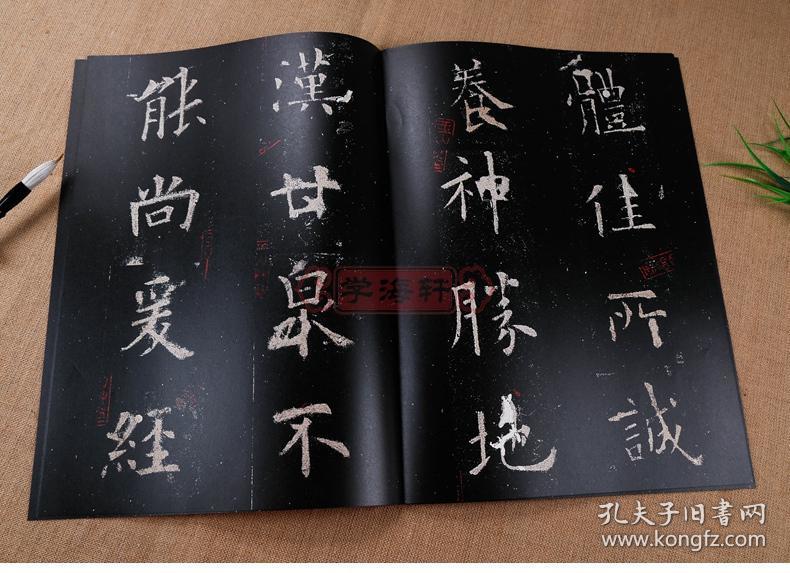 體佳所誠
養神勝地
漢甘泉不
能尚爰經
学海轩
孔夫子旧书网
www.kongfz.com